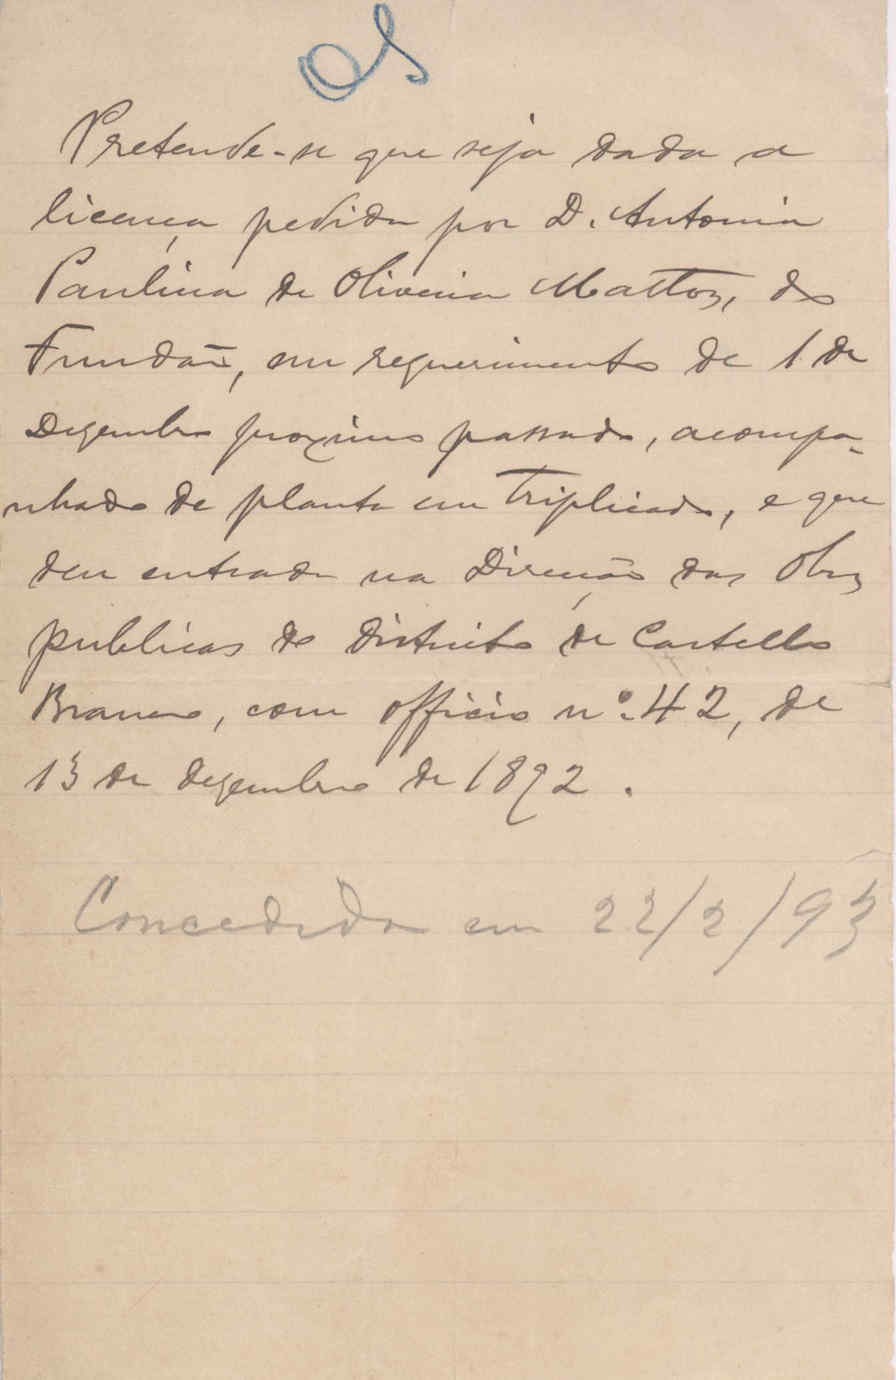 Pretende-se que seja dada a
licença pedida por D. Antonia
Paulina de Oliveira Mattos, do
Fundão, em requerimento de 1 de
Dezembro proximo passado, acompa-
nhado de planta em triplicado, e que
deu entrada na Direcção das Obras
publicas do districto de Castello
Branco, com officio nº. 42, de
13 de dezembro de 1892.
Concedida em 22/2/93